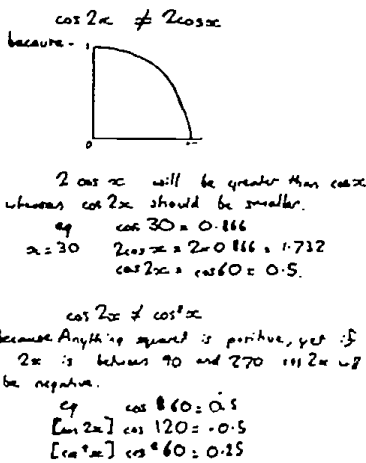 cos 2x ≠ 2cosx
because -
1
0
2 cos x will be greater than cosx
whereas cos 2x should be smaller.
eg cos 30 = 0.866
x = 30 2cos x = 2×0.866 = 1.732
cos 2x = cos60 = 0.5.
cos 2x ≠ cos²x
because Anything squared is positive, yet if
2x is between 90 and 270 cos 2x will
be negative.
eg cos 60 = 0.5
[cos 2x] cos 120 = -0.5
[cos²x] cos²60 = 0.25